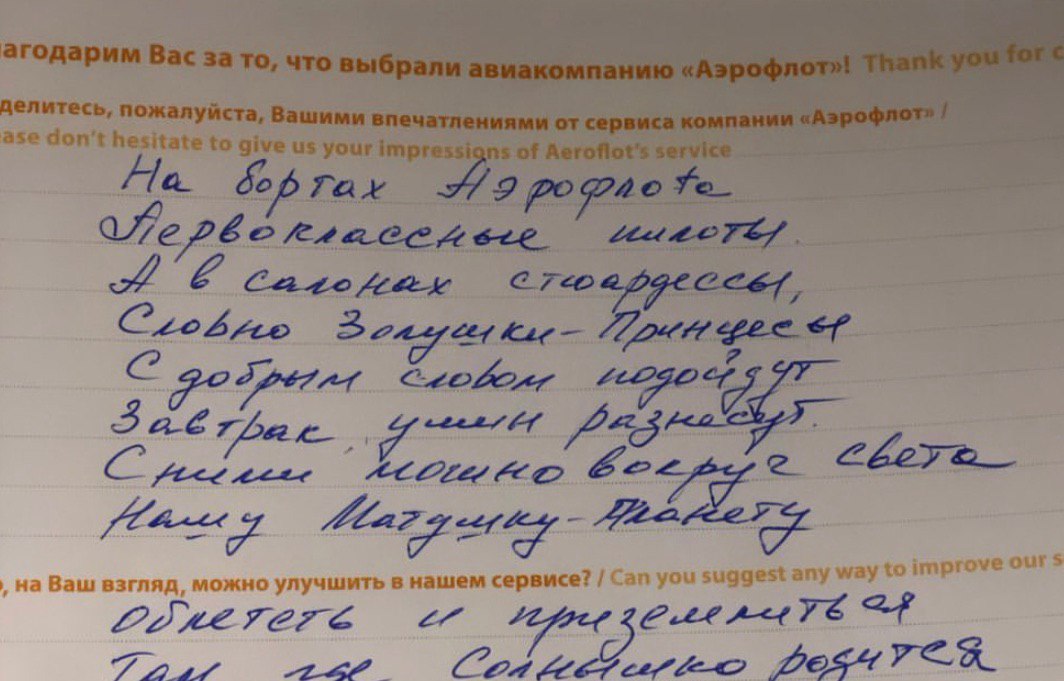 агодарим Вас за то, что выбрали авиакомпанию «Аэрофлот»! Thank you for c
делитесь, пожалуйста, Вашими впечатлениями от сервиса компании «Аэрофлот» /
ase don't hesitate to give us your impressions of Aeroflot's service
На бортах Аэрофлота
Первоклассные пилоты.
А в салонах стюардессы,
Словно Золушки-Принцесы
С добрым словом подойдут
Завтрак, ужин разнесут.
С ними можно вокруг света
Нашу Матушку-Планету
о, на Ваш взгляд, можно улучшить в нашем сервисе? / Can you suggest any way to improve our s
Облететь и приземлиться
Там где Солнышко родится